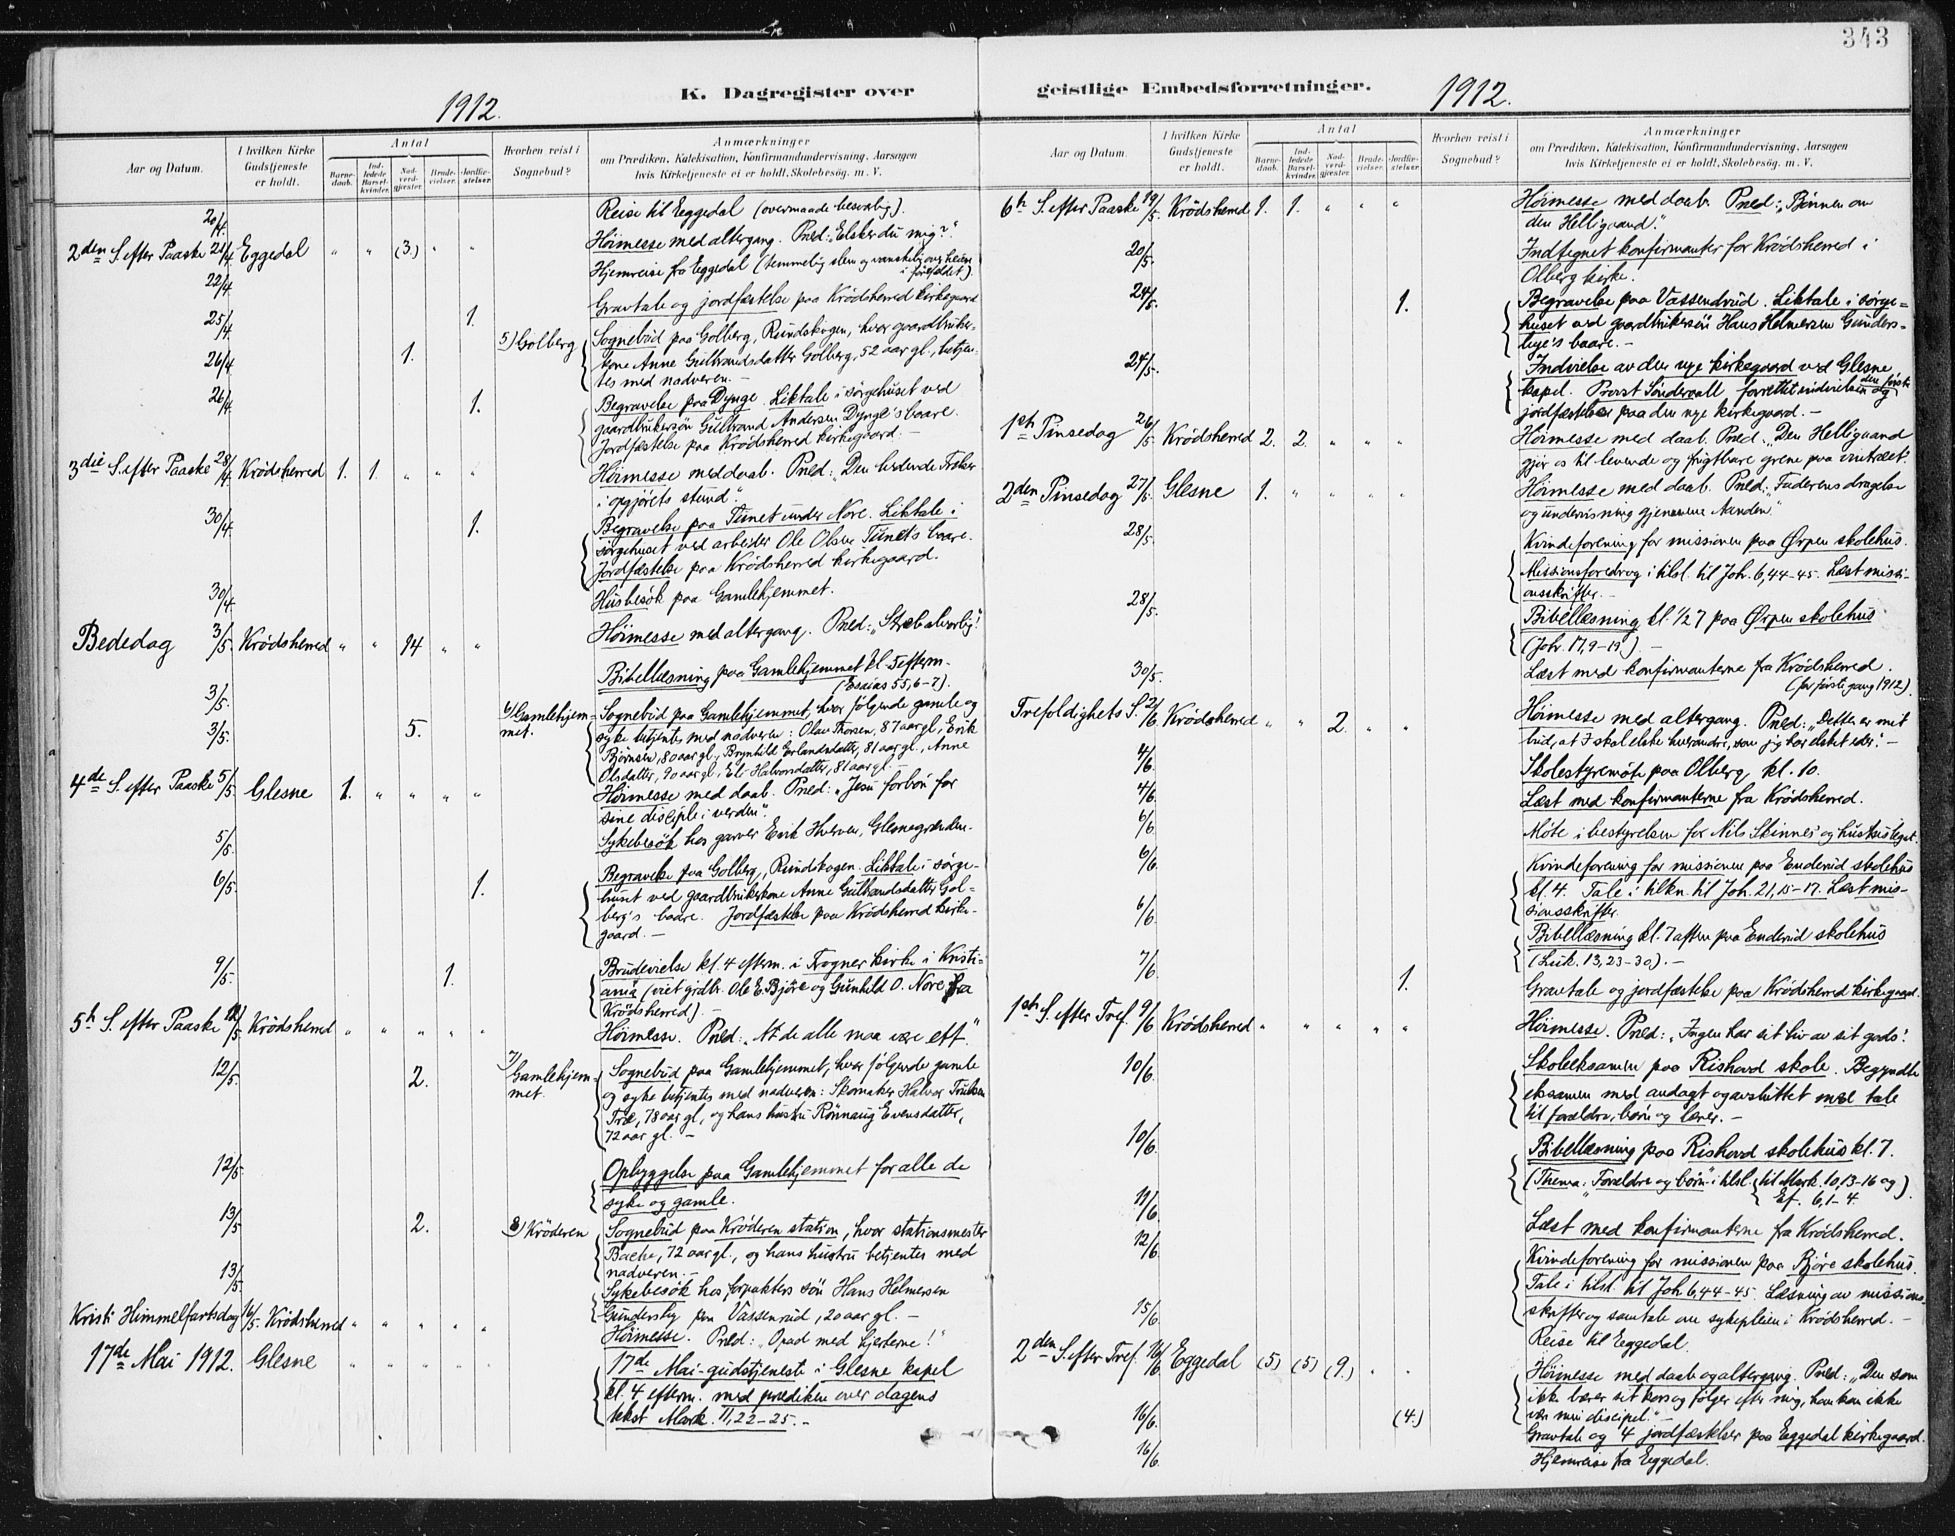 343
K. Dagregister over
geistlige Embedsforretninger.
1912.
1912.
Aar og Datum.
I hvilken Kirke Gudstjeneste er holdt.
Antal
Barnedaab.
Indledede Barselkvinder.
Nadverdgjester.
Brudevielser.
Jordfæstelser.
Hvorhen reist i Sognebud?
Anmærkninger
om Prædiken, Katekisation, Konfirmandundervisning, Aarsagen
hvis Kirketjeneste ei er holdt, Skolebesøg. m. V.
20/4. Reise til Eggedal (overmaade besværlig).
2den S. efter Paaske 21/4. Eggedal " " (3.) " " Höimesse med altergang. Præd: "Elsker du mig?"
22/4. Hjemreise fra Eggedal (temmelig slem og vanskelig over heien
i förefaldet).
25/4. 1. Gravtale og jordfæstelse paa Krödsherred kirkegaard
26/4 1. 5) Golberg Sognebud paa Golberg, Rundskogen, hvor gaardbruker-
kone Anne Gulbrandsdatter Golberg, 52 aar gl., betjen-
tes med nadveren. –
26/4. 1. Begravelse paa Dynge. Liktale i sörgehuset ved
gaardbrukersön Gulbrand Andersen Dynge's baare.
Jordfæstelse paa Krödsherred kirkegaard. –
3die S. efter Paaske 28/4 Krödsherred 1. 1. " " " Höimesse med daab. Præd: "Den bedende Frelser
i opgjörets stund".
30/4. 1. Begravelse paa Tunet under Nore. Liktale i
sörgehuset ved arbeider Ole Olsen Tunet's baare.
Jordfæstelse paa Krödsherred kirkegaard.
30/4. Husbesök paa Gamlehjemmet.
Bededag 3/5. Krödsherred " " 14 " " Höimesse med altergang. Præd: "Stræb alvorlig!"
3/5. Bibellæsning paa Gamlehjemmet kl. 5 efterm.
(Esaias 55, 6-7).
3/5. 5. 6) Gamlehjem=
met. Sognebud paa Gamlehjemmet, hvor följende gamle og
syke betjentes med nadveren: Olav Thorsen, 87 aar gl., Erik
Björnsen, 80 aar gl., Brynhild Erlandsdatter, 81 aar gl., Anne
Olsdatter, 90 aar gl., Eli Halvorsdatter, 81 aar gl. –
4de S. efter Paaske 5/5. Glesne 1. " " " " Höimesse med daab. Præd: "Jesu forbön for
sine disciple i verden".
5/5. Sykebesök hos garver Erik Hverven, Glesnegrænden.
6/5. 1. Begravelse paa Golberg, Rundskogen. Liktale i sörge-
huset ved gaardbrukerkone Anne Gulbrandsdatter Gol-
berg's baare. Jordfæstelse paa Krödsherred kirke-
gaard. –
9/5. 1. Brudevielse kl. 4 efterm. i Frogner kirke i Kristi-
ania (viet grdbr. Ole E. Björe og Gunhild O. Nore fra
Krödsherred). –
5te S. efter Paaske 12/5 Krödsherred " " " " " Höimesse. Præd: "At de alle maa være ett."
12/5. 2. 7) Gamlehjem=
met. Sognebud paa Gamlehjemmet, hvor följende gamle
og syke betjentes med nadveren: Skomaker Halvor Trulsen
Træ, 78 aar gl., og hans hustru Rönnaug Evensdatter,
72 aar gl. –
12/5. Opbyggelse paa Gamlehjemmet for alle de
syke og gamle.
13/5 2. 8) Kröderen Sognebud paa Kröderen station, hvor stationsmester
Bache, 72 aar gl., og hans hustru betjentes med
nadveren. –
13/5. Sykebesök hos forpakters sön Hans Helmersen
Gunderslug paa Vassenrud, 20 aar gl. –
Kristi Himmelfartsdag 16/5. Krödsherred " " " " " Höimesse. Præd: "Opad med hjerterne!"
17de Mai 1912. Glesne " " " " " 17de Mai-gudstjeneste i Glesne kapel
kl. 4 efterm. med prædiken over dagens
tekst Mark. 11, 22-25. –
Aar og Datum.
I hvilken Kirke Gudstjeneste er holdt.
Antal
Barnedaab.
Indledede Barselkvinder.
Nadverdgjester.
Brudevielser.
Jordfæstelser.
Hvorhen reist i Sognebud?
Anmærkninger
om Prædiken, Katekisation, Konfirmandundervisning, Aarsagen
hvis Kirketjeneste ei er holdt, Skolebesøg. m. V.
6te S. efter Paaske 19/5. Krödsherred 1. 1. " " " Höimesse med daab. Præd: "Bönnen om
den Helligaand."
20/5. Indtegnet konfirmanter for Krödsherred i
Olberg kirke.
24/5. 1. Begravelse paa Vassendrud. Liktale i sörge=
huset ved gaardbrukersön Hans Helmersen Gunders-
lug's baare. –
24/5. Indvielse av den nye kirkegaard ved Glesne
kapel. Provst Söndervall forrettet indvielsen og den förste
jordfæstelse paa den nye kirkegaard. –
1ste Pinsedag 26/5 Krödsherred 2. 2. " " " Höimesse med daab. Præd: "Den Helligaand
gjör os til levende og frugtbare grene paa vintræet."
2den Pinsedag 27/5 Glesne 1. " " " " Höimesse med daab. Præd: "Faderens dragelse
og undervisning gjennem Aanden"
28/5. Kvindeforening for missionen paa Ørpen skolehus.
Missionsforedrag i tilsl. til Joh. 6, 44-45. Læst missi-
onsskrifter. –
28/5. Bibellæsning kl. 1/2 7 paa Ørpen skolehus
(Joh. 17, 9-19). –
30/5. Læst med konfirmanterne fra Krödsherred.
(for förste gang 1912).
Trefoldigheds S. 2/6 Krödsherred " " 2. " " Höimesse med altergang. Præd: "Dette er mit
bud, at I skal elske hverandre, som jeg har elsket eder." –
4/6. Skolestyremöte paa Olberg kl. 10.
4/6. Læst med konfirmanterne fra Krödsherred.
6/6. Möte i bestyrelsen for Nils Skinnes' og hustrus legat.
6/6. Kvindeforening for missionen paa Enderud skolehus
kl. 4. Tale i tilkn. til Joh. 21, 15-17. Læst mis-
sionsskrifter.
6/6. Bibellæsning kl. 7 aften paa Enderud skolehus
(Luk. 13, 23-30). –
7/6. 1. Gravtale og jordfæstelse paa Krödsherred kirkegaard.
1ste S. efter Tref. 9/6 Krödsherred " " " " " Höimesse. Præd: "Ingen har sit liv av sit gods!"
10/6. Skoleeksamen paa Rishovd skole. Begyndte
eksamen med andagt og avsluttet med tale
til forældre, börn og lærer. –
10/6. Bibellæsning paa Rishovd skolehus kl. 7.
(Thema: "Forældre og börn" i tilsl. til Mark. 10, 13-16 og
Ef. 6, 1-4.)
11/6. Læst med konfirmanterne fra Krödsherred.
12/6. Kvindeforening for missionen paa Björe skolehus.
Tale i tilsl. til Joh. 6, 44-45. Læsning av missions-
skrifter og samtale om sykepleien i Krödsherred. –
15/6. Reise til Eggedal.
2den S. efter Tref. 16/6 Eggedal (5) (5) (9.) " " Höimesse med daab og altergang. Præd: "Den som
ikke bærer sit kors og fölger efter mig, han kan ikke
være min discipel." –
16/6. (4.) Gravtale og 4 jordfæstelser paa Eggedal kirkegaard.
16/6. Hjemreise fra Eggedal.